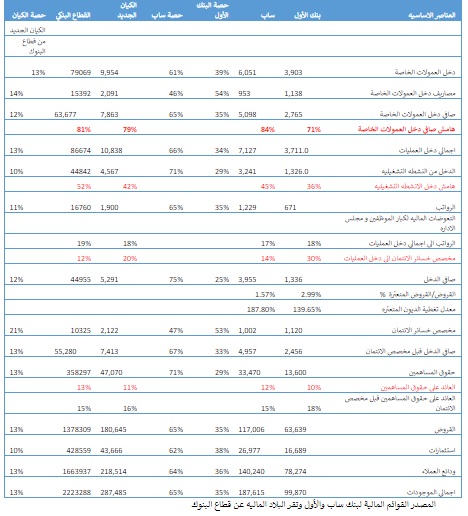 العناصر الاساسيه بنك الأول ساب حصة البنك الأول حصة ساب الكيان الجديد القطاع البنكي حصة الكيان
الكيان الجديد من قطاع البنوك
دخل العمولات الخاصة 3,903 6,051 39% 61% 9,954 79069 13%
مصاريف دخل العمولات الخاصة 1,138 953 54% 46% 2,091 15392 14%
صافي دخل العمولات الخاصة 2,765 5,098 35% 65% 7,863 63,677 12%
هامش صافي دخل العمولات الخاصة 71% 84% 79% 81%
اجمالي دخل العمليات 3,711.0 7,127 34% 66% 10,838 86674 13%
الدخل من النشطه التشغيليه 1,326.0 3,241 29% 71% 4,567 44842 10%
هامش دخل الانشطه التشغيليه 36% 45% 42% 52%
الرواتب 671 1,229 35% 65% 1,900 16760 11%
التعوضات الماليه لكبار الموظفين و مجلس الاداره
الرواتب الى اجمالي دخل العمليات 18% 17% 18% 19%
مخصص خسائر الائتمان الى دخل العمليات 30% 14% 20% 12%
صافي الدخل 1,336 3,955 25% 75% 5,291 44955 12%
القروض/القروض المتعثرة % 2.99% 1.57%
معدل تغطية الديون المتعثره 139.65% 187.80%
مخصص خسائر الائتمان 1,120 1,002 53% 47% 2,122 10325 21%
صافي الدخل قبل مخصص الائتمان 2,456 4,957 33% 67% 7,413 55,280 13%
حقوق المساهمين 13,600 33,470 29% 71% 47,070 358297 13%
العائد على حقوق المساهمين 10% 12% 11% 13%
العائد على حقوق المساهمين قبل مخصص الائتمان 18% 15% 16% 15%
القروض 63,639 117,006 35% 65% 180,645 1378309 13%
استثمارات 16,689 26,977 38% 62% 43,666 428559 10%
ودائع العملاء 78,274 140,240 36% 64% 218,514 1663937 13%
اجمالي الموجودات 99,870 187,615 35% 65% 287,485 2223288 13%
المصدر القوائم المالية لبنك ساب والأول وتقرير البلاد الماليه عن قطاع البنوك